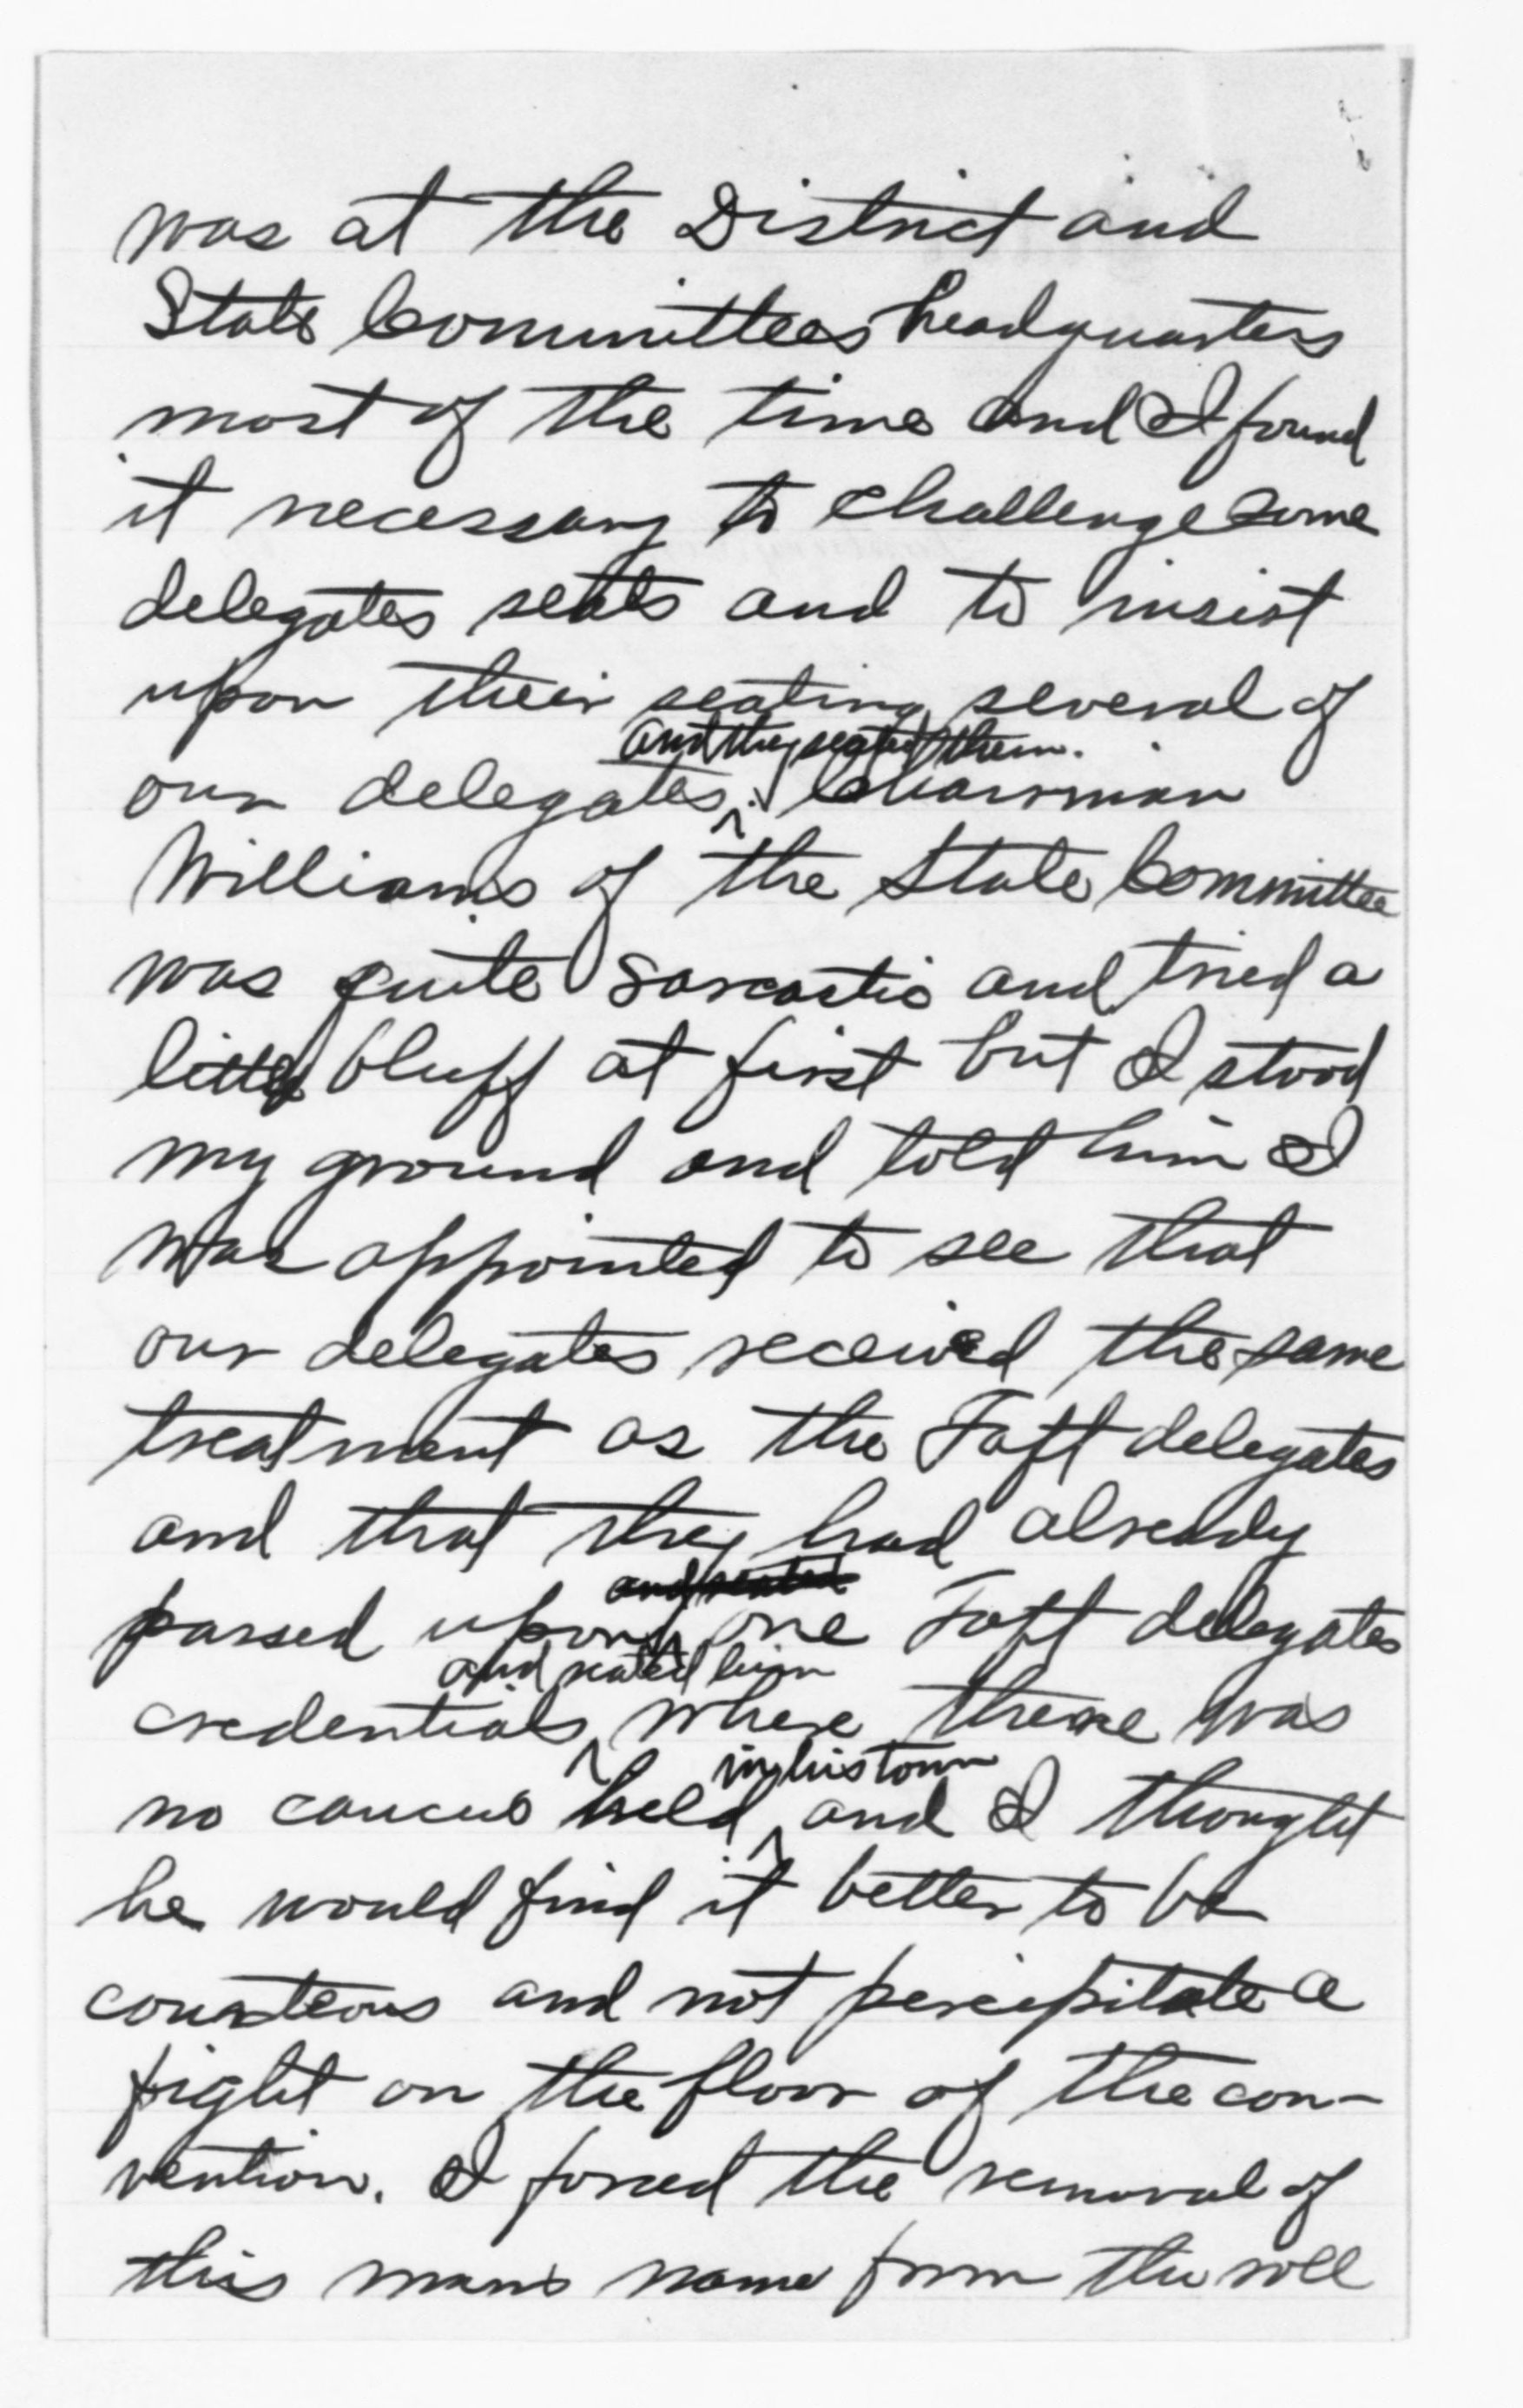 was at the District and
State Committees headquarters
most of the time and I found
it necessary to challenge some
delegates seats and to insist
upon their seating several of
and they seated them.
our delegates. Chairman
Williams of the State Committee
was quite sarcastic and tried a
little bluff at first but I stood
my ground and told him I
was appointed to see that
our delegates received the same
treatment as the Taft delegates
and that they had already
and seated
passed upon one Taft delegates
and seated him
credentials where there was
in his town
no caucus held and I thought
he would find it better to be
courteous and not percipitate a
fight on the floor of the con-
vention. I forced the removal of
this mans name from the roll